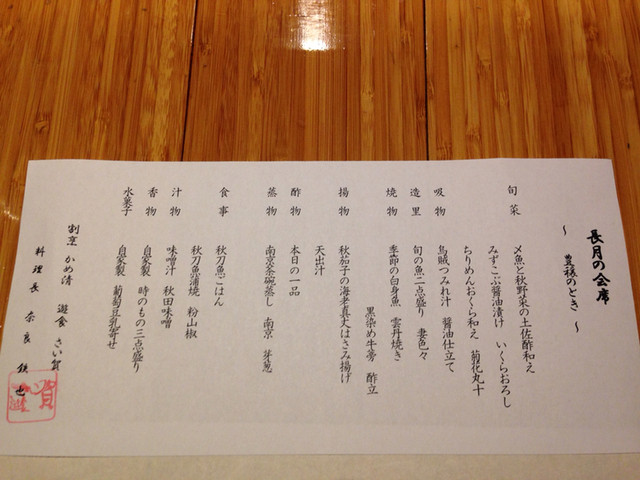 長月の会席
～ 豊穣のとき ～
旬菜 〆魚と秋野菜の土佐酢和え
みずこぶ醤油漬け いくらおろし
ちりめんおくら和え 菊花丸十
吸物 烏賊つみれ汁 醤油仕立て
造里 旬の魚二点盛り 妻色々
焼物 季節の白身魚 雲丹焼き
黒染め牛蒡 酢立
揚物 秋茄子の海老真丈はさみ揚げ
天出汁
酢物 本日の一品
蒸物 南京茶碗蒸し 南京 芽葱
食事 秋刀魚ごはん
秋刀魚蒲焼 粉山椒
汁物 味噌汁 秋田味噌
香物 自家製 時のもの三点盛り
水菓子 自家製 葡萄豆乳寄せ
割烹 かめ清 遊食 さい賀
料理長 奈良 鉄也